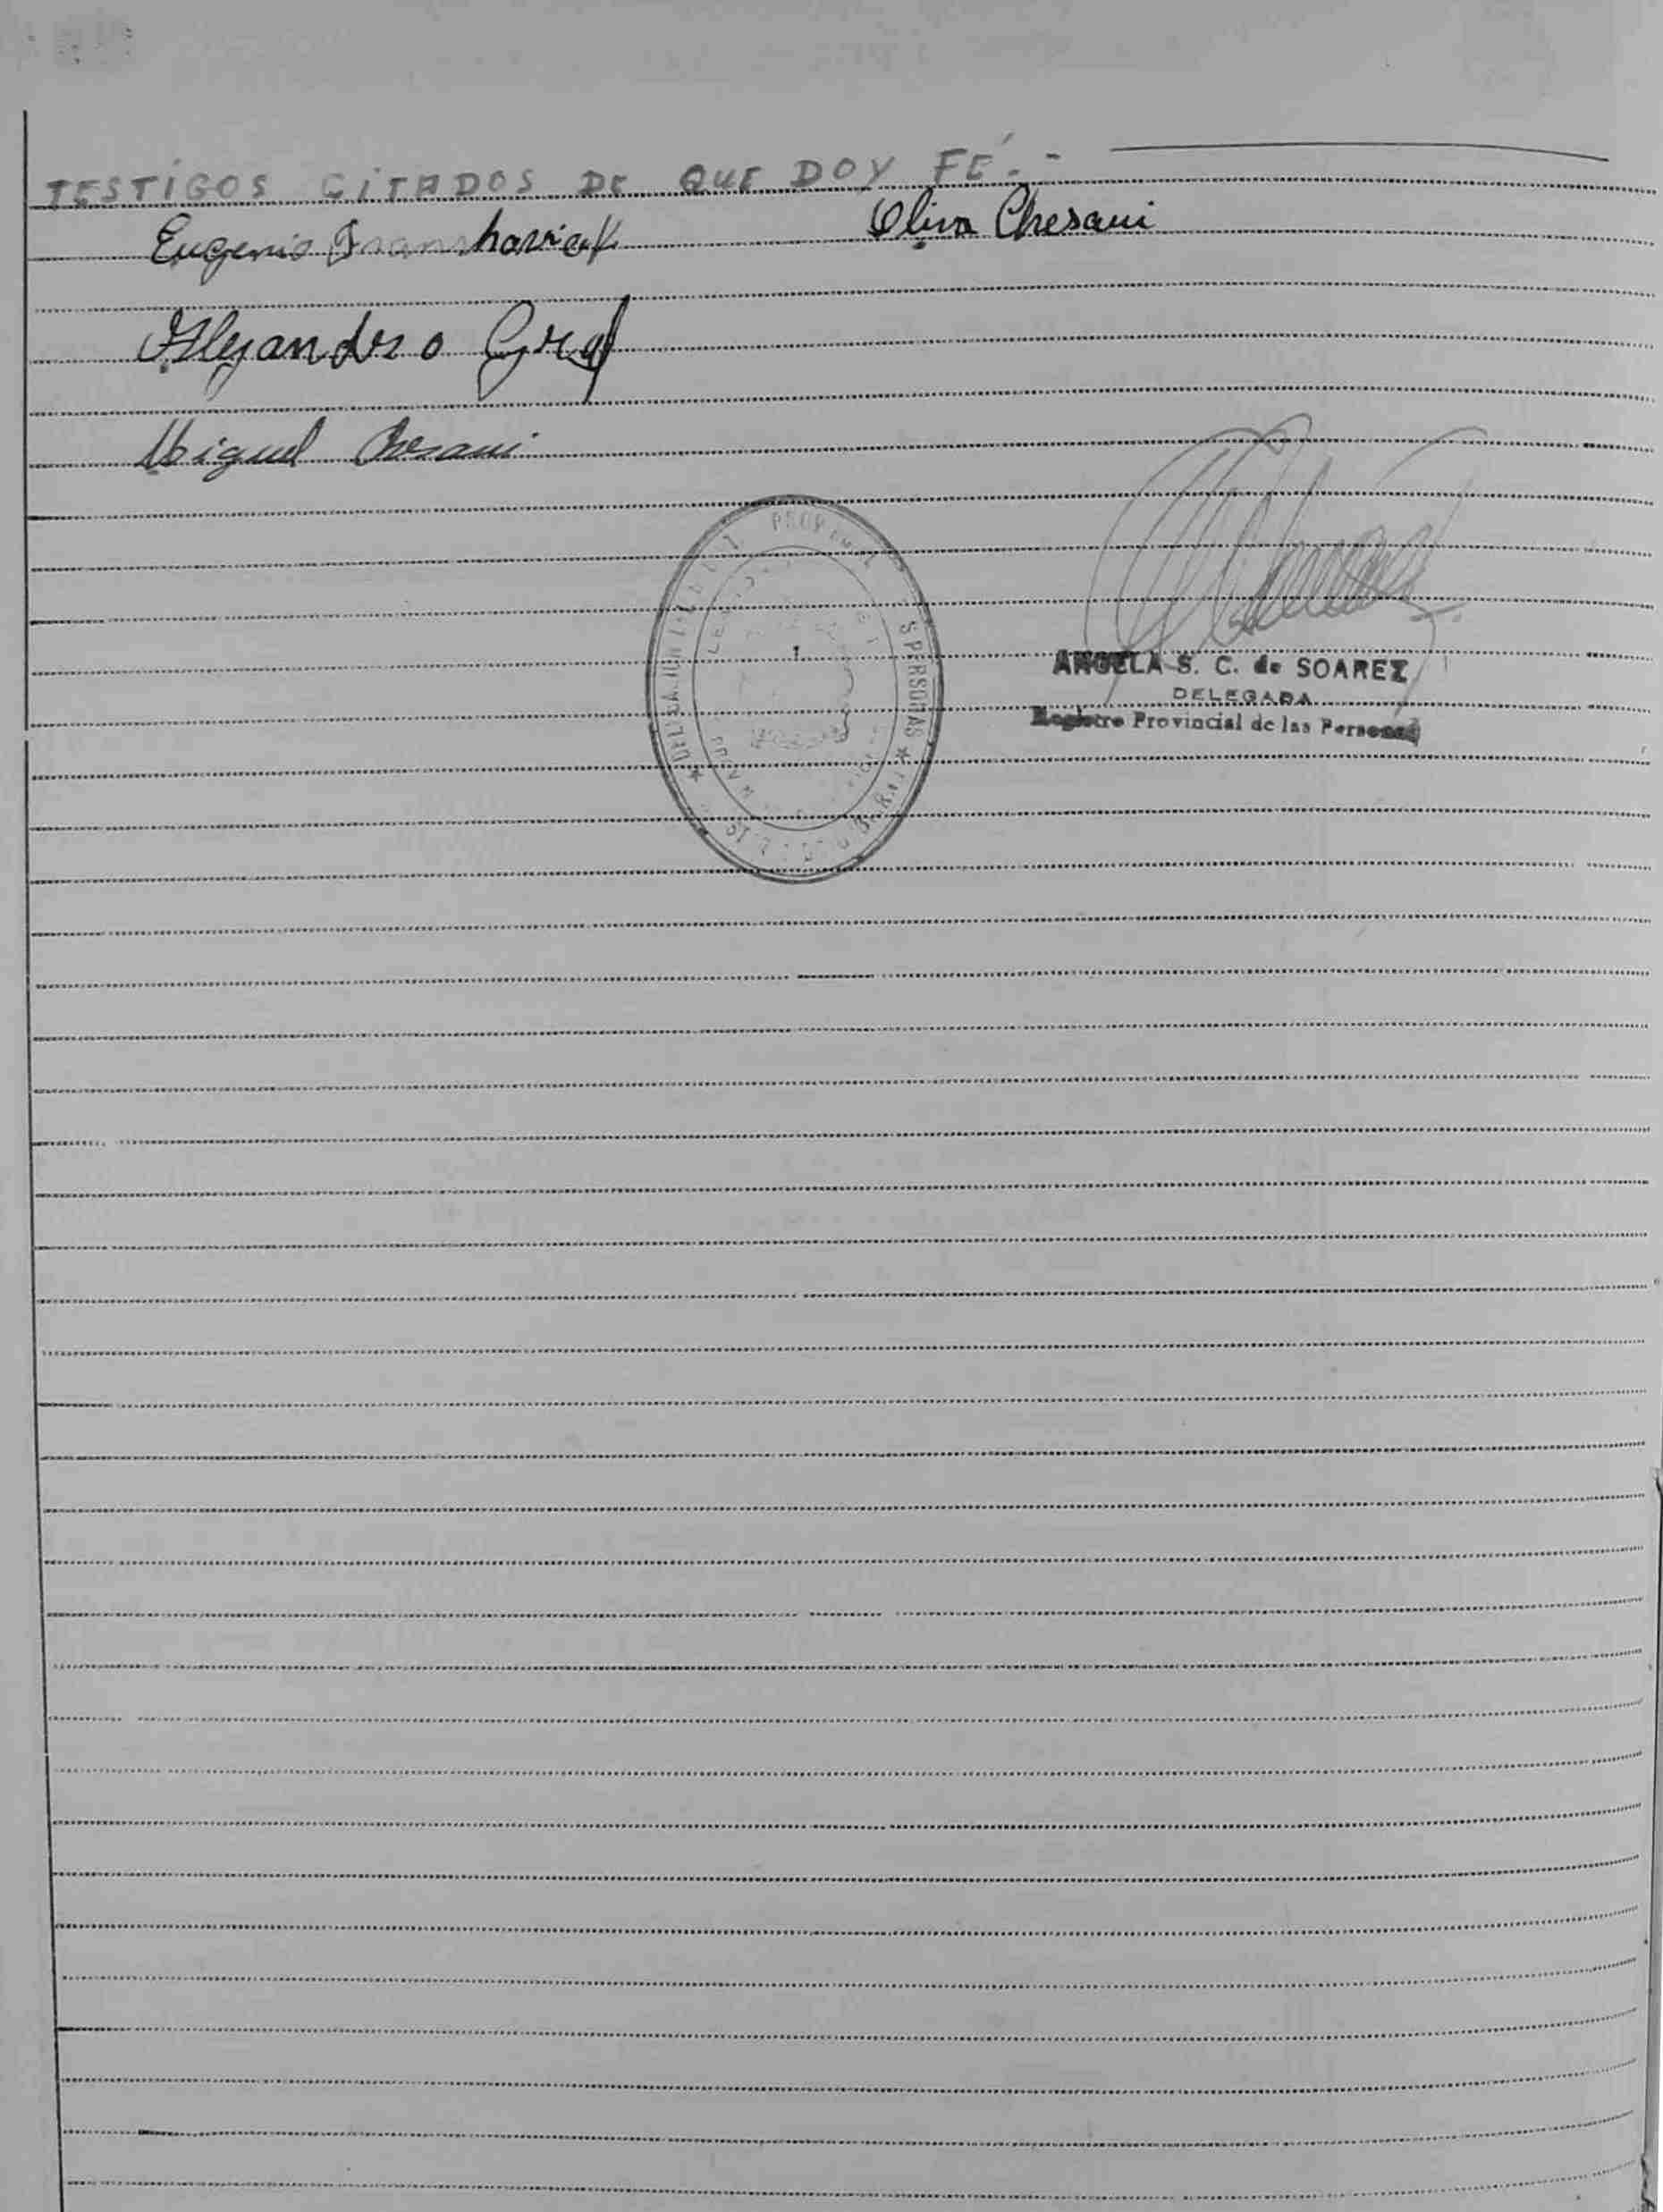 TESTIGOS CITADOS DE QUE DOY FÉ.-
Eugenio Oliva Chesani
Alejandro
Miguel Chesani
PERSONAS
ANGELA S. C. de SOAREZ
DELEGADA
Registro Provincial de las Personas